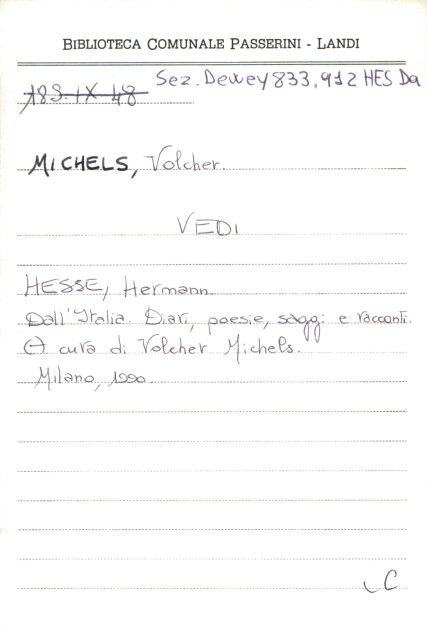 BIBLIOTECA COMUNALE PASSERINI - LANDI
Sez. Dewey 833.912 HES Da
183.IX 48
MICHELS, Volcher.
VEDI
HESSE, Hermann
Dall'Italia. Diari, poesie, saggi e racconti.
A cura di Volcher Michels.
Milano, 1990.
C